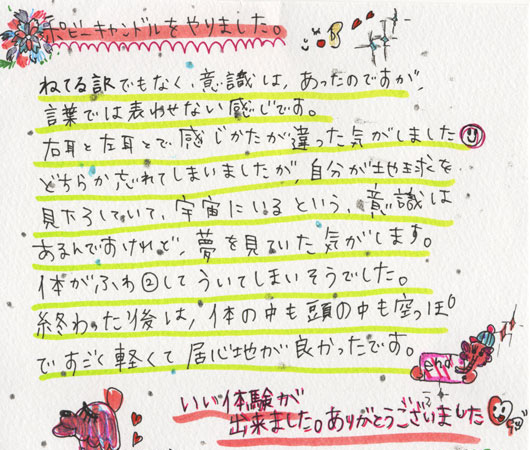 ホピーキャンドルをやりました。
ねてる訳でもなく、意識は、あったのですが、
言葉では表わせない感じです。
右耳と左耳とで感じかたが違った気がしました
どちらか忘れてしまいましたが、自分が地球を
見下ろしていて、宇宙にいるという、意識は
あるんですけれど、夢を見ていた気がします。
体がふわ②してういてしまいそうでした。
終わった後は、体の中も頭の中も空っぽ
ですごく軽くて居心地が良かったです。
end
いい体験が
出来ました。ありがとうございました